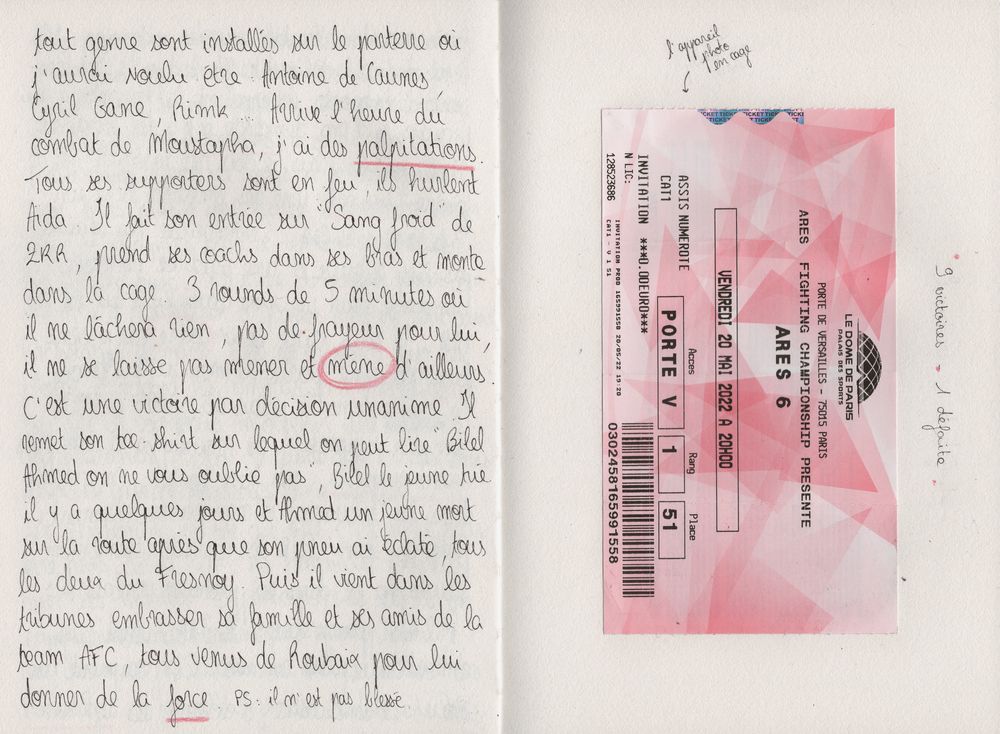 tout genre sont installés sur le parterre où
j'aurai voulu être. Antoine de Caunes,
Cyril Gane, Rimk... Arrive l'heure du
combat de Moustapha, j'ai des palpitations.
Tous ses supporters sont en feu, ils hurlent
Aïda. Il fait son entrée sur "Sang froid" de
ZKR, prend ses coachs dans ses bras et monte
dans la cage. 3 rounds de 5 minutes où
il ne lâchera rien, pas de frayeur pour lui,
il ne se laisse pas mener et mène d'ailleurs.
C'est une victoire par décision unanime. Il
remet son tee-shirt sur lequel on peut lire "Bilel
Ahmed on ne vous oublie pas", Bilel le jeune tué
il y a quelques jours et Ahmed un jeune mort
sur la route après que son pneu ai éclaté, tous
les deux du Fresnoy. Puis il vient dans les
tribunes embrasser sa famille et ses amis de la
team AFC, tous venus de Roubaix pour lui
donner de la force. PS: il n'est pas blessé
l'appareil
photo
en cage
TICKET TICKET TICKET
LE DOME DE PARIS
PALAIS DES SPORTS
PORTE DE VERSAILLES - 75015 PARIS
ARES 6
ARES FIGHTING CHAMPIONSHIP PRESENTE
VENDREDI 20 MAI 2022 A 20H00
Acces
Rang
Place
PORTE V
1
51
ASSIS NUMEROTE
CAT1
INVITATION ***0.00EURO***
N LIC:
128523686
INVITATION PROD 165991558 20/05/22 19:20
CAT1 - V 1 51
0302458165991558
9 victoires • 1 défaite •